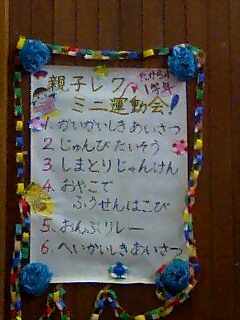 親子レク
たから小
1学年
ミニ運動会!
1. かいかいしきあいさつ
2 じゅんびたいそう
3. しまとりじゃんけん
4. おやこで
ふうせんはこび
5. おんぶリレー
6. へいかいしきあいさつ